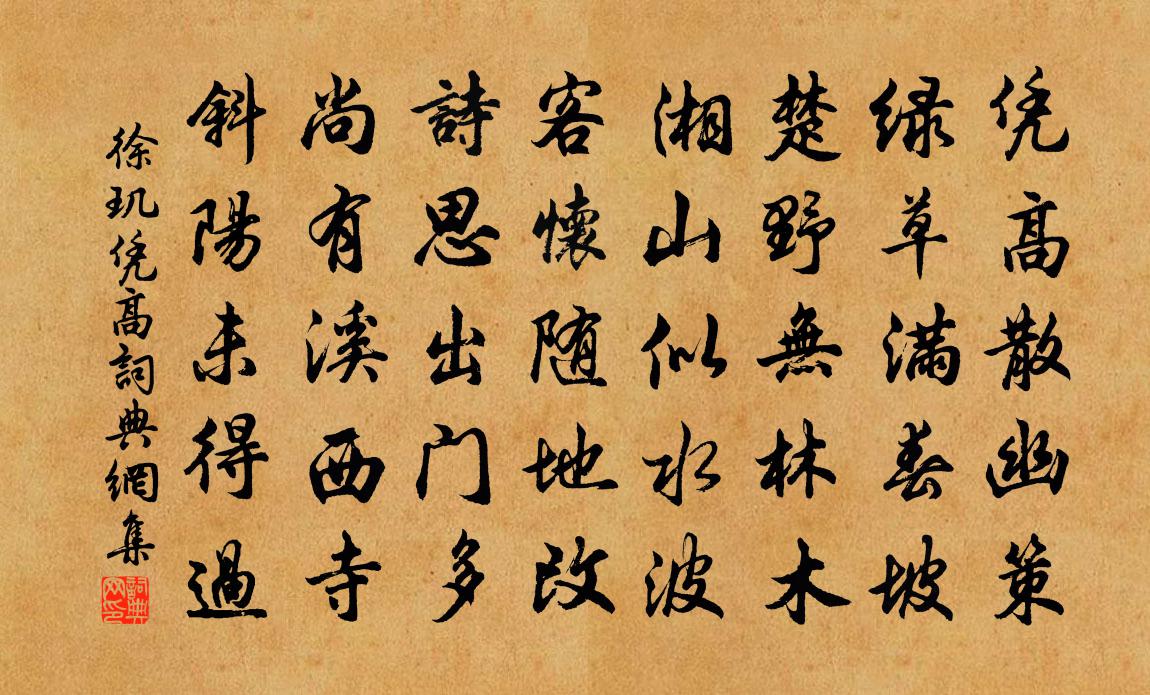 凭高散幽策
绿草满春坡
楚野無林木
湘山似水波
客懷随地改
詩思出门多
尚有溪西寺
斜陽未得過
徐玑凭高詞典網集
詞典网印